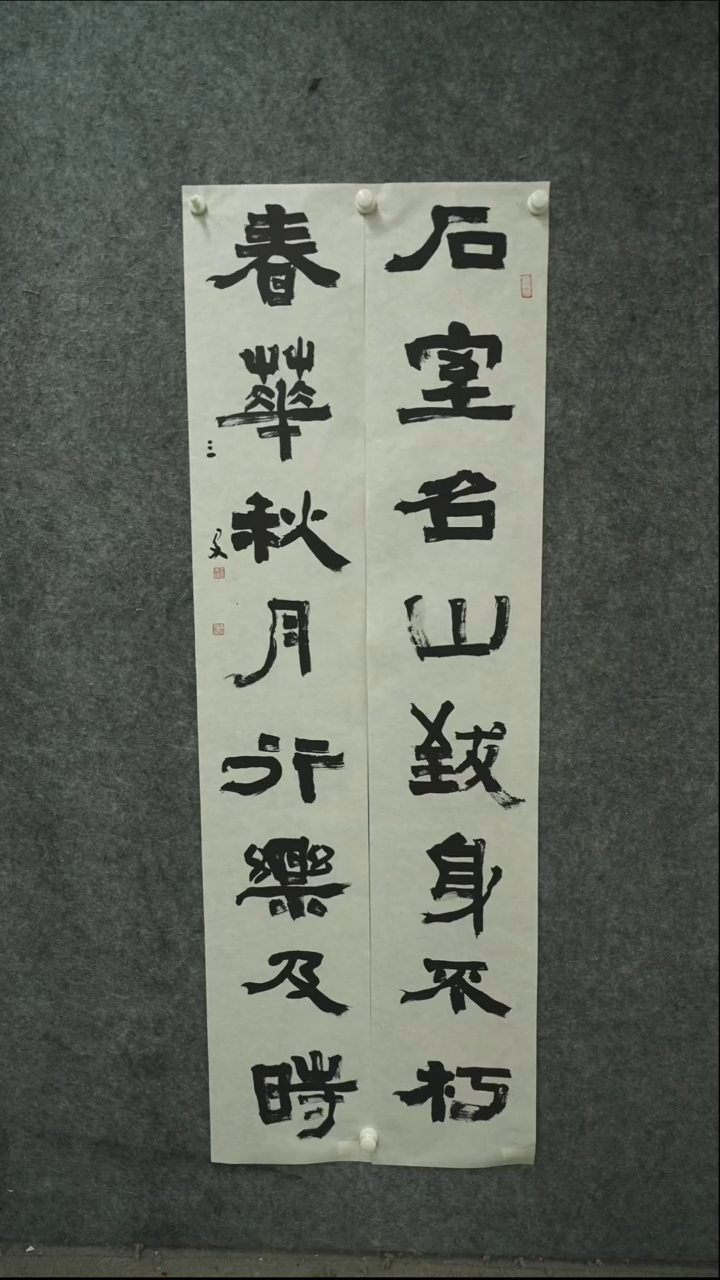 石室名山致身不朽
春華秋月行樂及時